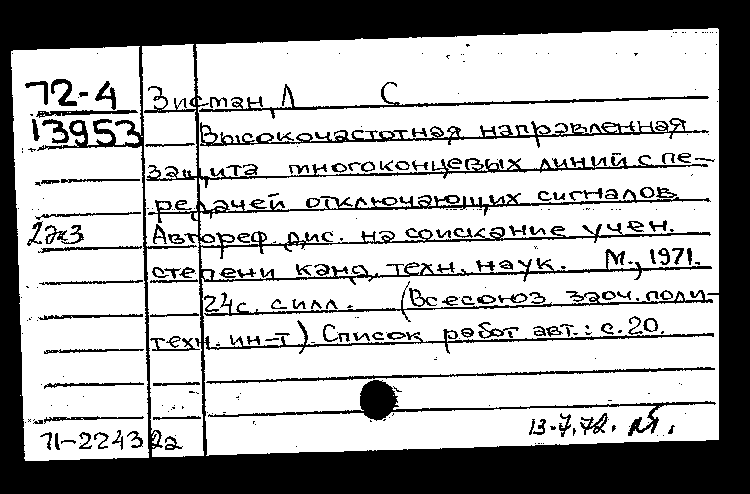 72-4 Зисман, Л С
13953 Высокочастотная направленная
защита многоконцевых линий с пе-
редачей отключающих сигналов.
2экз Автореф. дис. на соискание учен.
степени канд. техн. наук. М., 1971.
24 с. с илл. (Всесоюз. заоч. поли-
техн. ин-т) Список работ авт.: с. 20.
71-22432а 13.7.72.